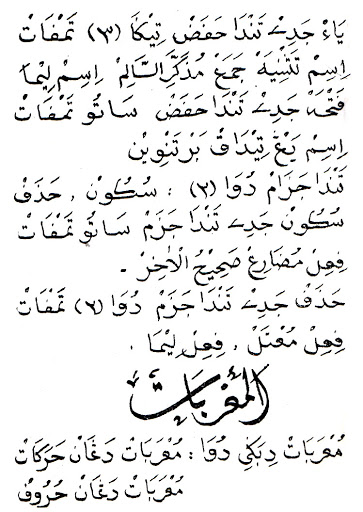 ياء جدي تندا حفض تيڬا (٣) تمفات
اسم تثنيه جمع مذكر السالم اسم ليما
فتحه جدي تندا حفض ساتو تمفات
اسم يڠ تيداق برتنوين
تندا جزم دوا (٢) : سكون ، حذف
سكون جدي تندا جزم ساتو تمفات
فعل مضارع صحيح الاخر .
حذف جدي تندا جزم دوا (٢) تمفات
فعل معتل ، فعل ليما .
المعربات
معربات دبڬي دوا : معربات دڠان حركات
معربات دڠان حروف